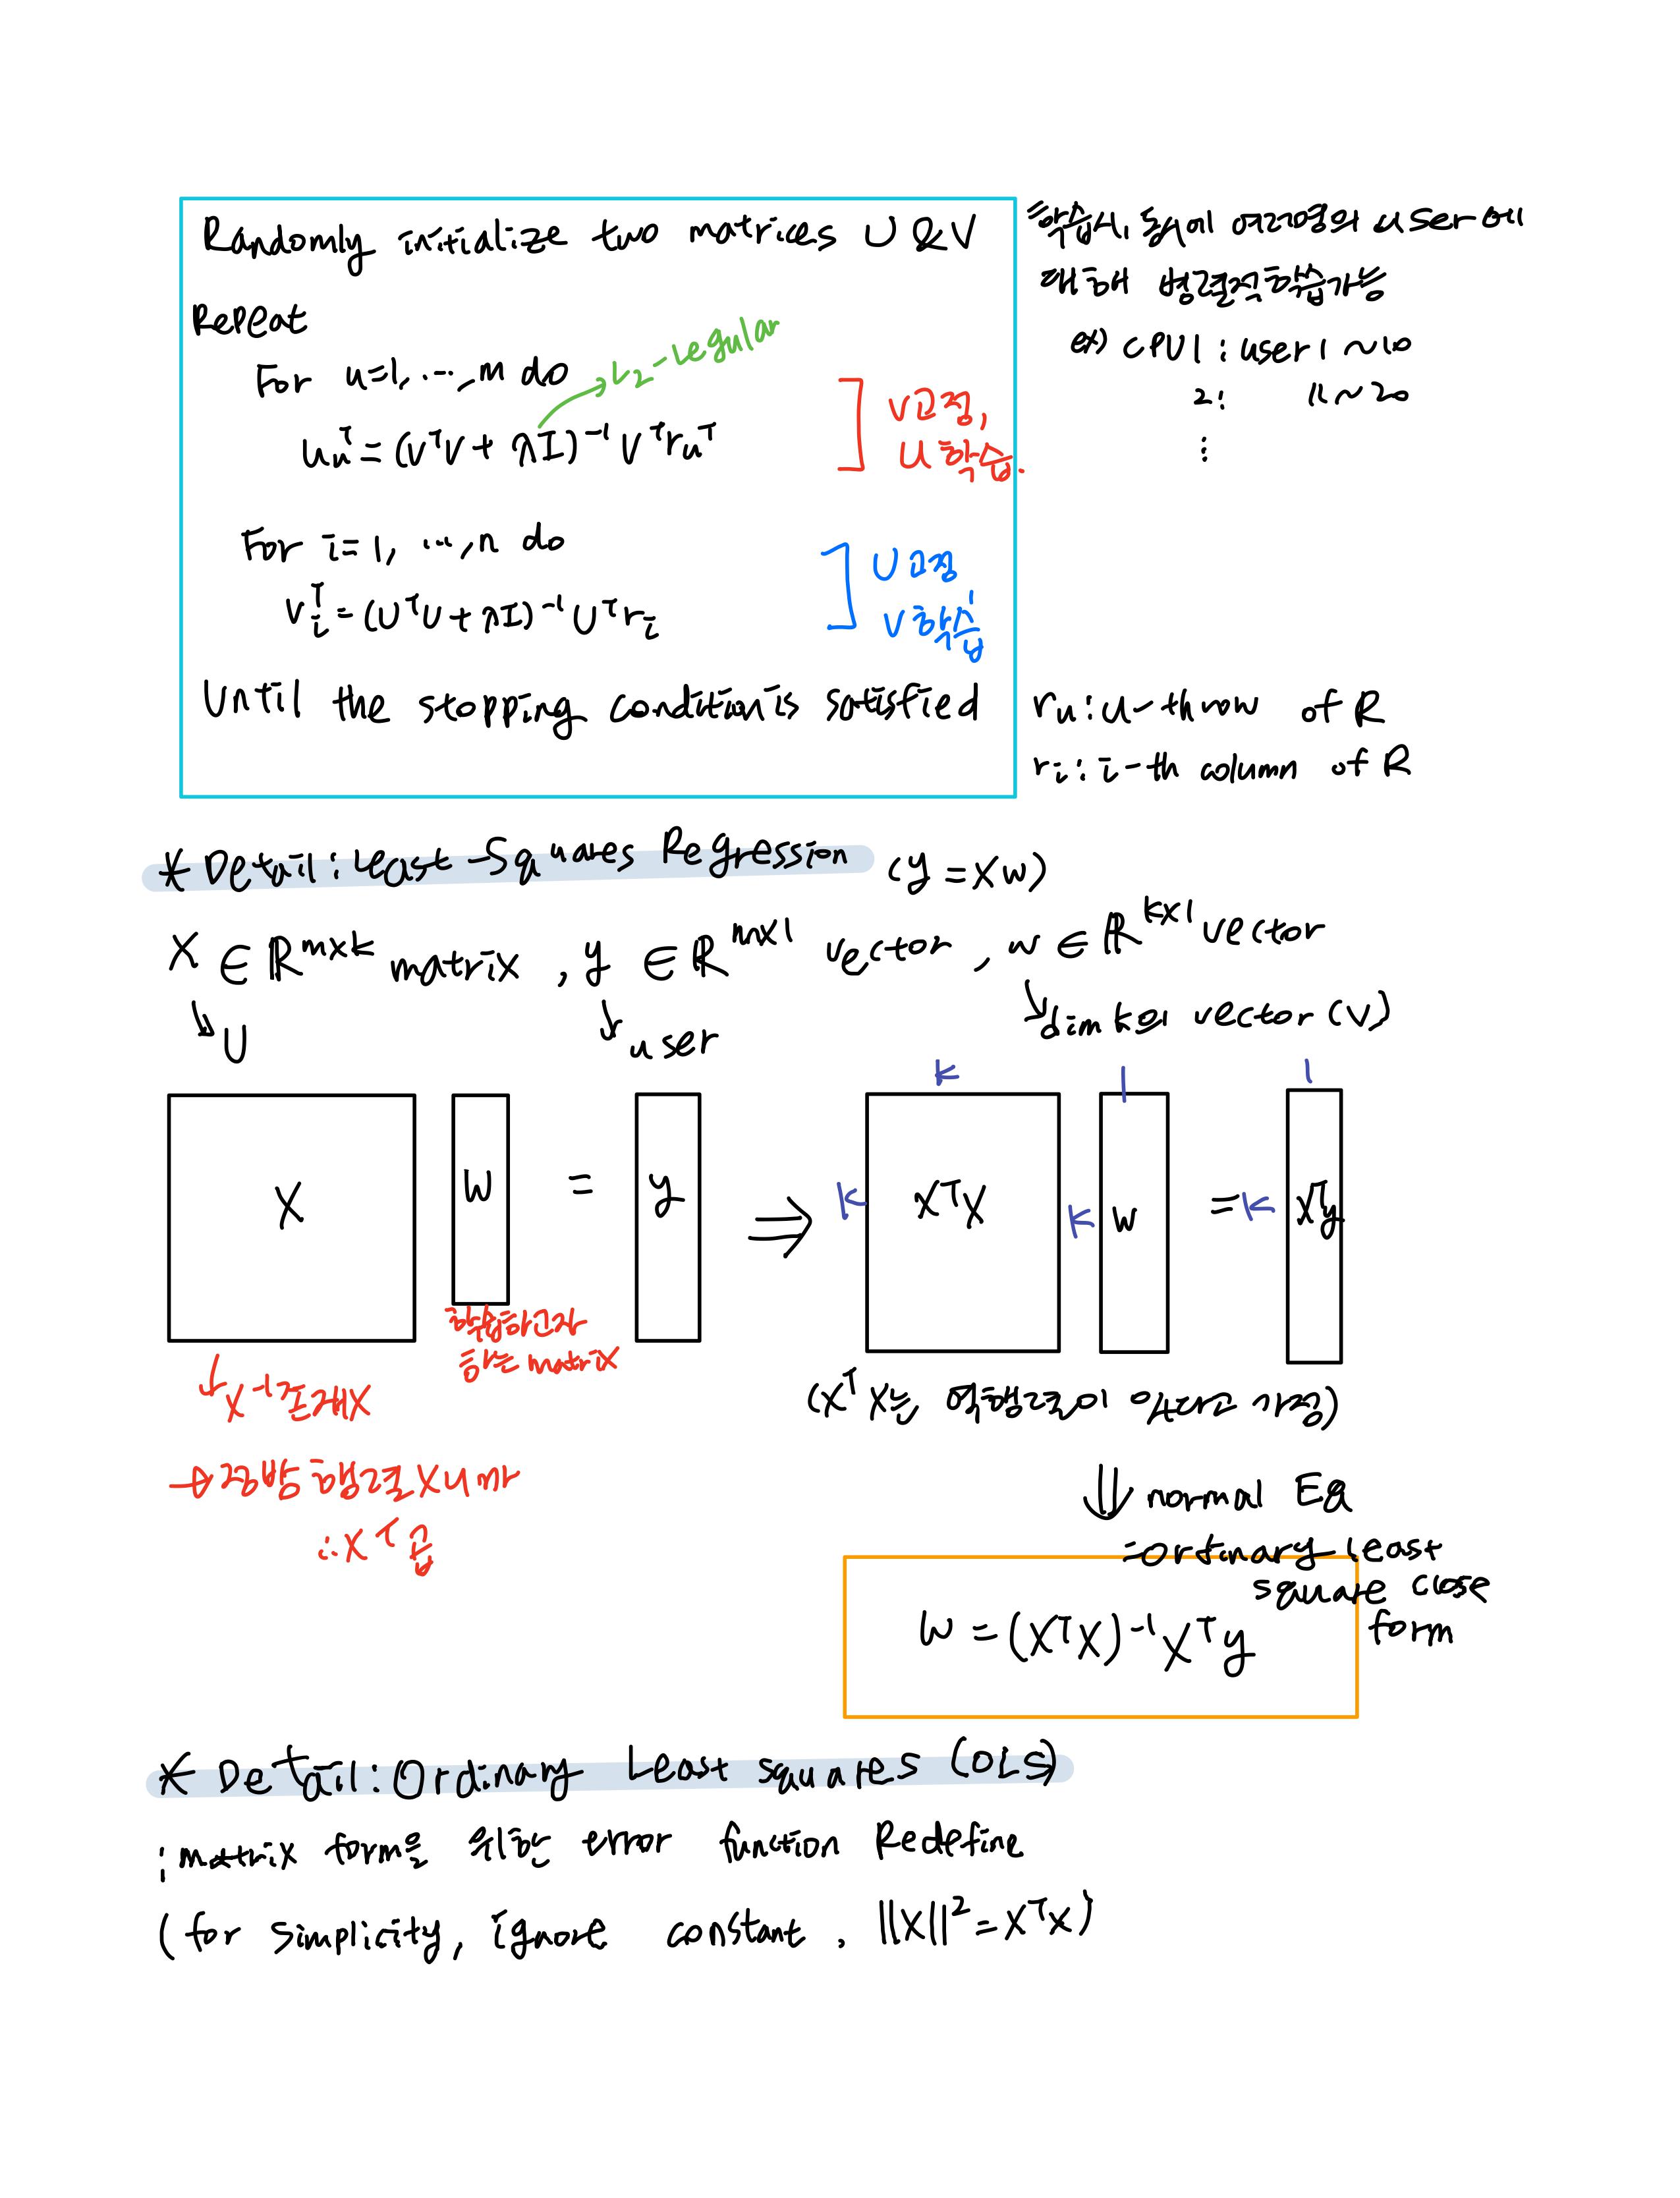 Randomly initialize two matrices U & V
Repeat
For u=1, ..., m do
L₂-regular
uᵤᵀ = (VᵀV + λI)⁻¹ Vᵀrᵤᵀ
V고정,
U학습.
For i=1, ..., n do
vᵢᵀ = (UᵀU + λI)⁻¹ Uᵀrᵢ
U고정
V학습
Until the stopping condition is satisfied
학습시, 동시에 여러명의 user에
대해 병렬적 학습가능
ex) CPU1 : user 1 ~ 10
2: 11 ~ 20
⋮
rᵤ : u-th row of R
rᵢ : i-th column of R
* Detail : Least-Squares Regression (y = Xw)
X ∈ ℝᵐˣᵏ matrix, y ∈ ℝᵐˣ¹ vector, w ∈ ℝᵏˣ¹ vector
↳ U
↳ user
↳ dim k인 vector (V)
X W = y ⇒ XᵀX w = Xᵀy
k 1 1
k k k
학습하고자
하는 matrix
↳ X⁻¹존재X
(XᵀX는 역행렬이 있다고 가정)
→ 정방 행렬X니까
∴ Xᵀ곱
⇓ normal Eq
=ortinary least
square close
form
W = (XᵀX)⁻¹Xᵀy
* Detail : Ordinary Least squares (OLS)
: matrix form을 위한 error function Redefine
(for simplicity, ignore constant, ||X||² = Xᵀx)